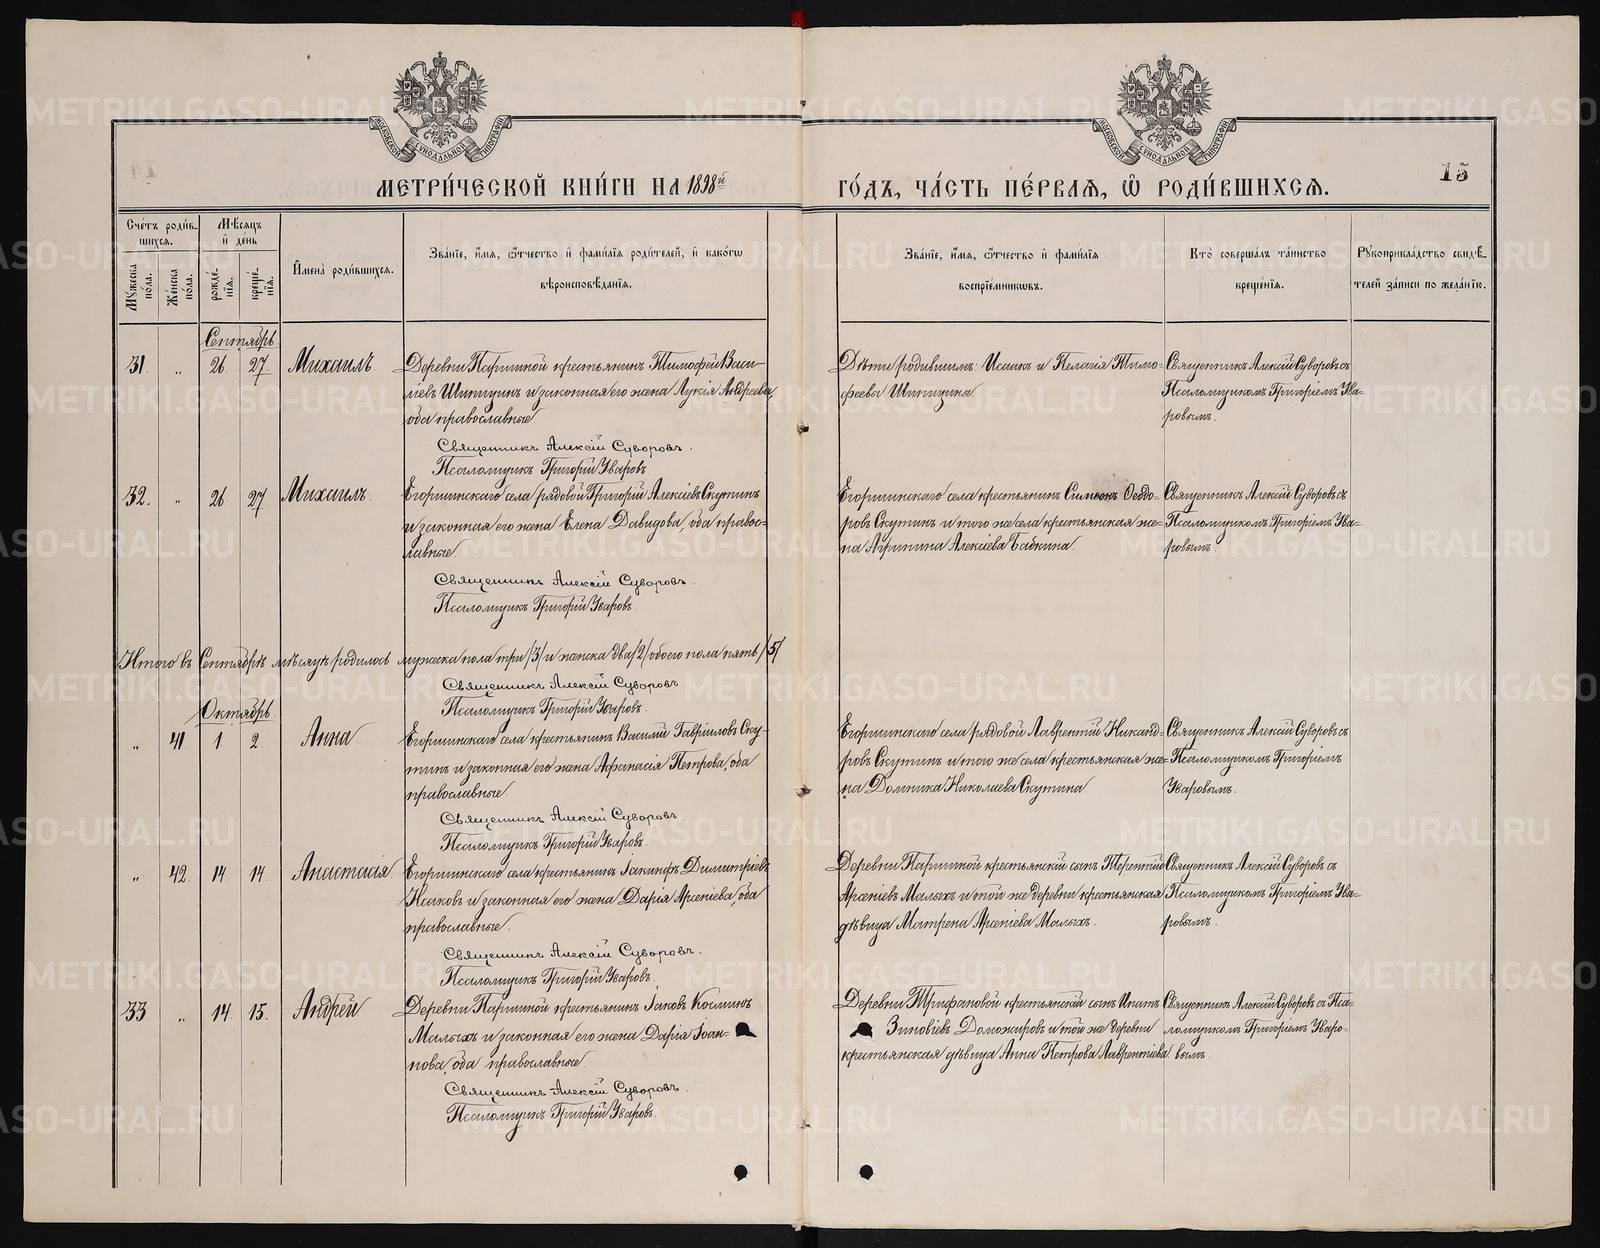 МОСКОВСКОЙ СУНОДАЛЬНОЙ ТИПОГРАФІИ
МОСКОВСКОЙ СУНОДАЛЬНОЙ ТИПОГРАФІИ
МЕТРИ́ЧЕСКОЙ КНИ́ГИ НА 1898й
ГО́ДЪ, ЧА́СТЬ ПЕ́РВАѦ, Ѿ РОДИ́ВШИХСѦ.
15
Сче́тъ роди́в-
шихсѧ.
Мꙋжеска по́ла.
Же́нска по́ла.
Мѣ́сѧцъ и҆ де́нь
рожде́-
нїѧ.
креще́-
нїѧ.
И҆мена̀ роди́вшихсѧ.
Зва́нїе, и҆́мѧ, ѻ҆́тчество и҆ фами́лїѧ роди́телей, и҆ како́гѡ
вѣроисповѣ́данїѧ.
Зва́нїе, и҆́мѧ, ѻ҆́тчество и҆ фами́лїѧ
воспрїе́мникѡвъ.
Кто̀ соверша́лъ та́инство
креще́нїѧ.
Рꙋкоприкла́дство свидѣ́-
телей за́писи по жела́нїю.
Сентябрь
31. „ 26. 27. Михаилъ
Деревни Паршиной крестьянинъ Тимофей Васи-
ліевъ Шипицинъ и законная его жена Лукія Андреева,
оба православные
Священникъ Алексій Суворовъ.
Псаломщикъ Григорій Уваровъ
Дѣти родившимъ: Исаакъ и Пелагія Тимо-
феевы Шипицина
Священникъ Алексій Суворовъ съ
Псаломщикомъ Григоріемъ Ува-
ровымъ.
32. „ 26 27 Михаилъ.
Егоршинскаго села рядовой Григорій Алексіевъ Скутинъ
и законная его жена Елена Давидова, оба право-
лавные
Священникъ Алексій Суворовъ.
Псаломщикъ Григорій Уваровъ.
Егоршинскаго села крестьянинъ Симеонъ Ѳеодо-
ровъ Скутинъ и того же села крестьянская же-
на Агрипина Алексіева Бабкина.
Священникъ Алексій Суворовъ съ
Псаломщикомъ Григоріемъ Ува-
ровымъ.
Итого въ Сентябрѣ мѣсяцѣ родилось мужеска пола три /3/ и женска два /2/ обоего пола пять /5/
Священникъ Алексій Суворовъ
Псаломщикъ Григорій Уваровъ.
Октябрь
„ 41 1. 2. Анна
Егоршинскаго села крестьянинъ Василій Гавріиловъ Ску-
тинъ и законная его жена Афанасія Петрова, оба
православные.
Священникъ Алексій Суворовъ.
Псаломщикъ Григорій Уваровъ.
Егоршинскаго села рядовой Лаврентій Никанд-
ровъ Скутинъ и того же села крестьянская же-
на Домника Николаева Скутина
Священникъ Алексій Суворовъ съ
Псаломщикомъ Григоріемъ
Уваровымъ.
„ 42. 14 14. Анастасія
Егоршинскаго села крестьянинъ Іакинфъ Димитріевъ
Исаковъ и законная его жена Дарія Арсеніева, оба
православные.
Священникъ Алексій Суворовъ.
Псаломщикъ Григорій Уваровъ.
Деревни Паршиной крестьянскій сынъ Терентій
Арсеніевъ Малыхъ и той же деревни крестьянская
дѣвица Матрена Арсеніева Малыхъ.
Священникъ Алексій Суворовъ съ
Псаломщикомъ Григоріемъ Ува-
ровымъ.
33 „ 14. 15. Андрей
Деревни Паршиной крестьянинъ Іаковъ Косминъ
Малыхъ и законная его жена Дарія Іоан-
нова, оба православные.
Священникъ Алексій Суворовъ.
Псаломщикъ Григорій Уваровъ.
Деревни Трифановой крестьянскій сынъ Ипатъ
Зиновіевъ Доможировъ и той же деревни
крестьянская дѣвица Анна Петрова Лаврентіева.
Священникъ Алексій Суворовъ съ Пса-
ломщикомъ Григоріемъ Уваро-
вымъ.
METRIKI.GASO-URAL.RU